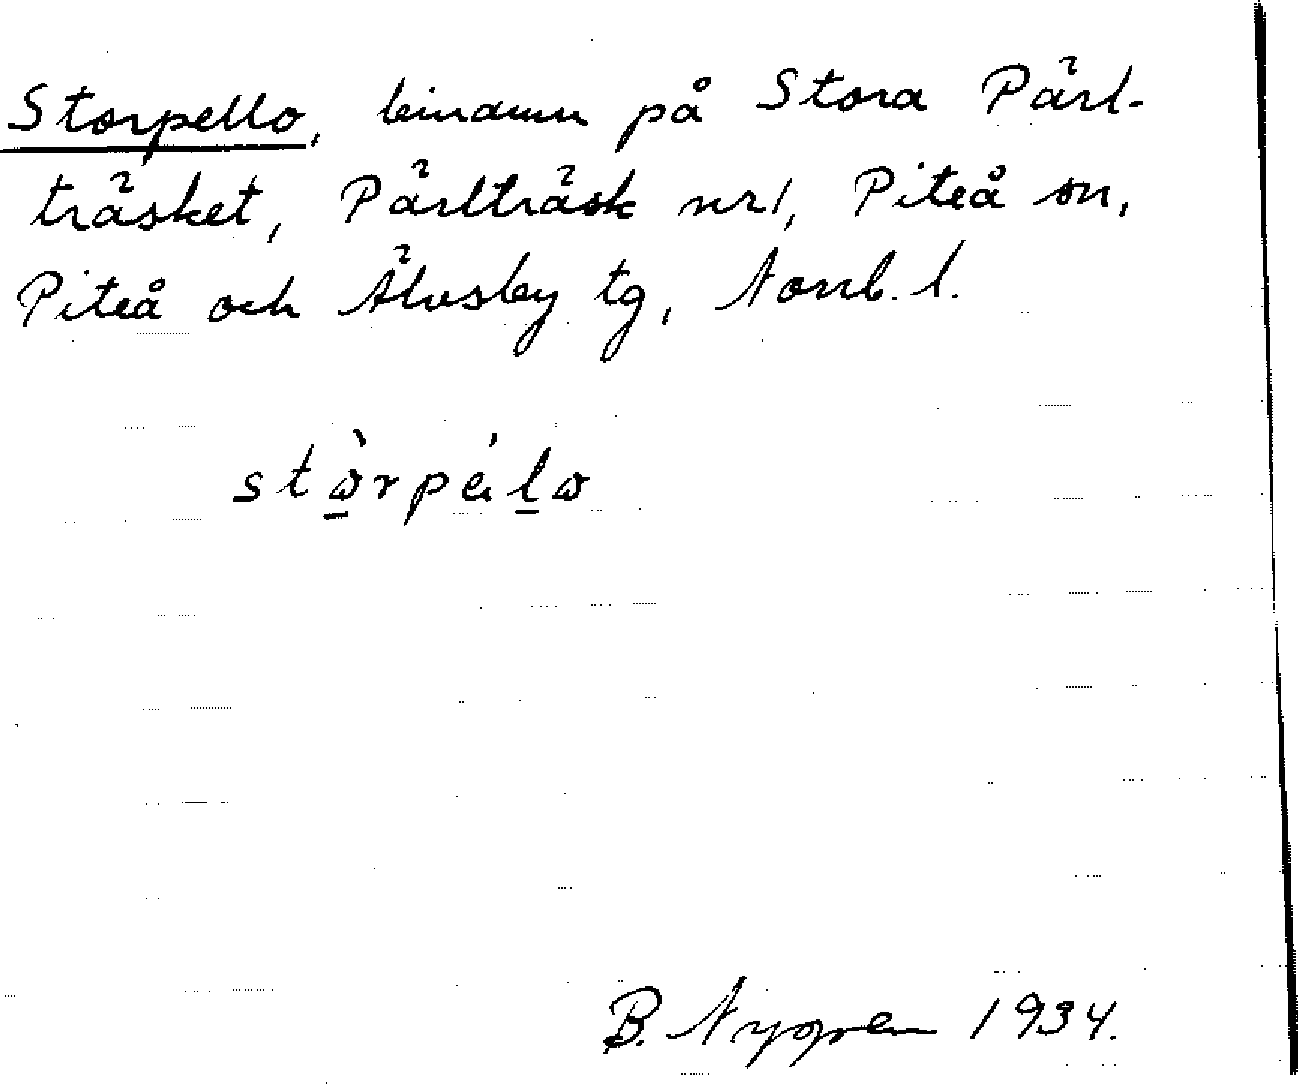 Storpello, binamn på Stora Pärl-
träsket, Pärlträsk nr 1, Piteå sn,
Piteå och Älvsby tg, Norrb. l.
B. Nygren 1934.